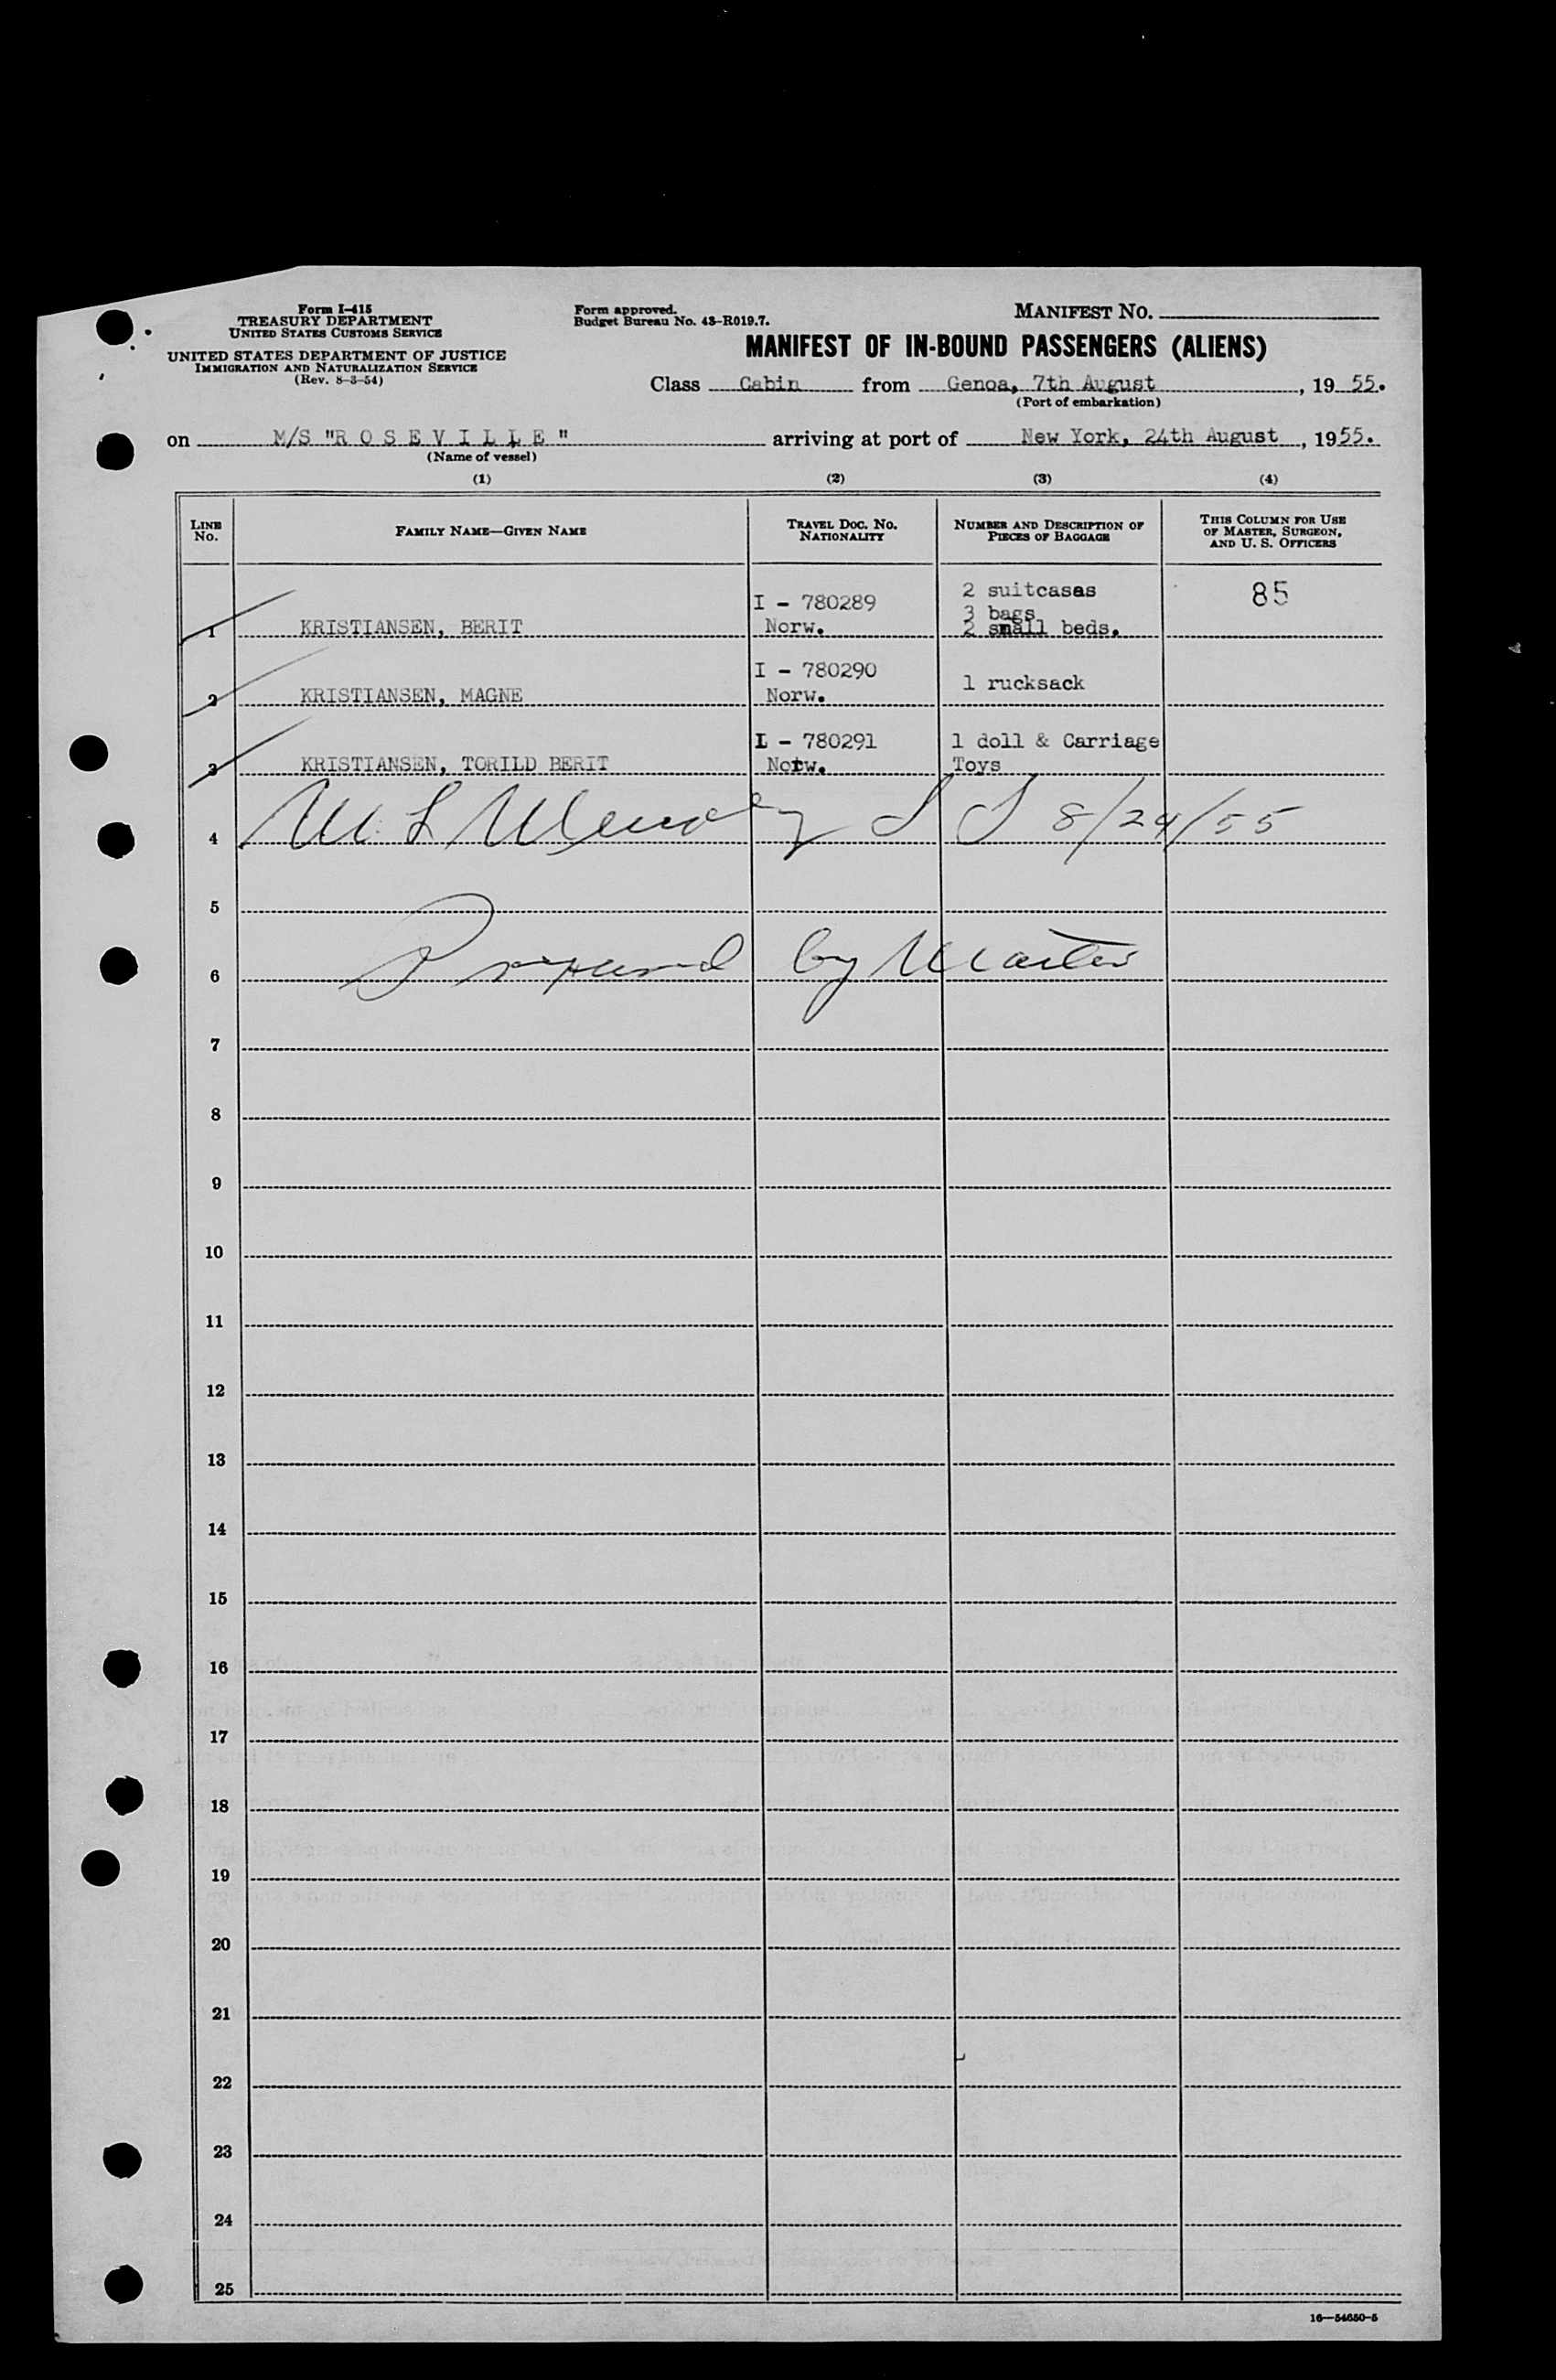 Form I-415
TREASURY DEPARTMENT
UNITED STATES CUSTOMS SERVICE
UNITED STATES DEPARTMENT OF JUSTICE
IMMIGRATION AND NATURALIZATION SERVICE
(Rev. 8-3-54)
Form approved.
Budget Bureau No. 43-R019.7.
MANIFEST NO.
MANIFEST OF IN-BOUND PASSENGERS (ALIENS)
Class Cabin from Genoa, 7th August, 19 55.
(Port of embarkation)
on M/S "R O S E V I L L E" arriving at port of New York, 24th August, 1955.
(Name of vessel)
(1) (2) (3) (4)
LINE No. FAMILY NAME—GIVEN NAME TRAVEL DOC. NO. NATIONALITY NUMBER AND DESCRIPTION OF PIECES OF BAGGAGE THIS COLUMN FOR USE OF MASTER, SURGEON, AND U. S. OFFICERS
1 KRISTIANSEN, BERIT I - 780289 Norw. 2 suitcases 3 bags 2 small beds. 85
2 KRISTIANSEN, MAGNE I - 780290 Norw. 1 rucksack
3 KRISTIANSEN, TORILD BERIT I - 780291 Norw. 1 doll & Carriage Toys
4 8/24/55
5
6 by Master
7
8
9
10
11
12
13
14
15
16
17
18
19
20
21
22
23
24
25
16—54650-5